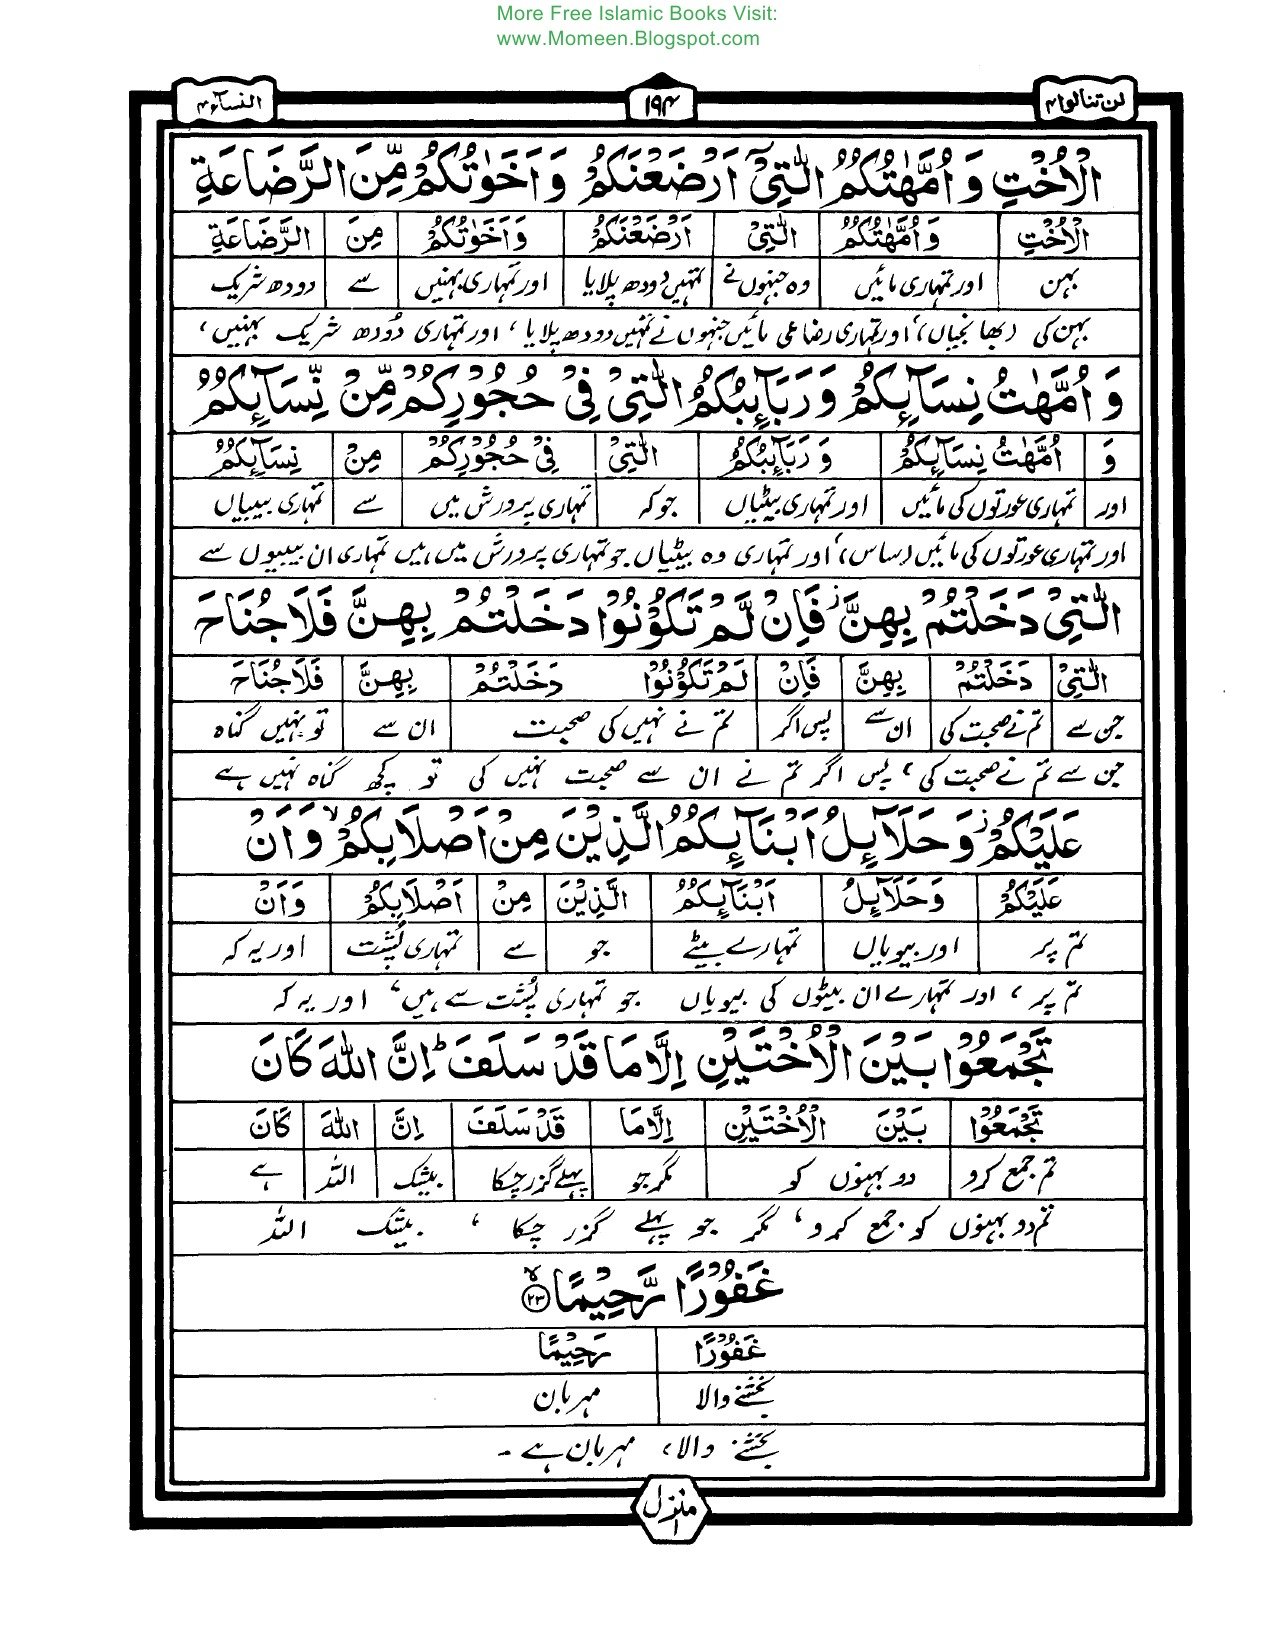 More Free Islamic Books Visit:
www.Momeen.Blogspot.com
لن تنالوا ۴ ۱۹۴ النسآء ۴
الْاُخْتِ وَ اُمَّهٰتُكُمُ الّٰتِيْٓ اَرْضَعْنَكُمْ وَ اَخَوٰتُكُمْ مِّنَ الرَّضَاعَةِ
الْاُخْتِ وَ اُمَّهٰتُكُمُ الّٰتِيْ اَرْضَعْنَكُمْ وَ اَخَوٰتُكُمْ مِنَ الرَّضَاعَةِ
بہن اور تمہاری مائیں وہ جنہوں نے تمہیں دودھ پلایا اور تمہاری بہنیں سے دودھ شریک
بہن کی (بھانجیاں)، اور تمہاری رضاعی مائیں جنہوں نے تمہیں دودھ پلایا، اور تمہاری دُودھ شریک بہنیں،
وَ اُمَّهٰتُ نِسَآئِكُمْ وَ رَبَآئِبُكُمُ الّٰتِيْ فِيْ حُجُوْرِكُمْ مِّنْ نِّسَآئِكُمُ
وَ اُمَّهٰتُ نِسَآئِكُمْ وَ رَبَآئِبُكُمُ الّٰتِيْ فِيْ حُجُوْرِكُمْ مِنْ نِسَآئِكُمُ
اور تمہاری عورتوں کی مائیں اور تمہاری بیٹیاں جو کہ تمہاری پرورش میں سے تمہاری بیبیاں
اور تمہاری عورتوں کی مائیں (ساس)، اور تمہاری وہ بیٹیاں جو تمہاری پرورش میں ہیں تمہاری ان بیبیوں سے
الّٰتِيْ دَخَلْتُمْ بِهِنَّ ز فَاِنْ لَّمْ تَكُوْنُوْا دَخَلْتُمْ بِهِنَّ فَلَا جُنَاحَ
الّٰتِيْ دَخَلْتُمْ بِهِنَّ فَاِنْ لَمْ تَكُوْنُوْا دَخَلْتُمْ بِهِنَّ فَلَا جُنَاحَ
جن سے تم نے صحبت کی ان سے پس اگر تم نے نہیں کی صحبت ان سے تو نہیں گناہ
جن سے تم نے صحبت کی، پس اگر تم نے ان سے صحبت نہیں کی تو کچھ گناہ نہیں ہے
عَلَيْكُمْ ز وَ حَلَآئِلُ اَبْنَآئِكُمُ الَّذِيْنَ مِنْ اَصْلَابِكُمْ لا وَ اَنْ
عَلَيْكُمْ وَ حَلَآئِلُ اَبْنَآئِكُمُ الَّذِيْنَ مِنْ اَصْلَابِكُمْ وَ اَنْ
تم پر اور بیویاں تمہارے بیٹے جو سے تمہاری پُشت اور یہ کہ
تم پر، اور تمہارے ان بیٹوں کی بیویاں جو تمہاری پُشت سے ہیں، اور یہ کہ
تَجْمَعُوْا بَيْنَ الْاُخْتَيْنِ اِلَّا مَا قَدْ سَلَفَ ط اِنَّ اللّٰهَ كَانَ
تَجْمَعُوْا بَيْنَ الْاُخْتَيْنِ اِلَّا مَا قَدْ سَلَفَ اِنَّ اللّٰهَ كَانَ
تم جمع کرو دو بہنوں کو مگر جو پہلے گزر چکا بیشک اللہ ہے
تم دو بہنوں کو جمع کرو، مگر جو پہلے گزر چکا، بیشک اللہ
غَفُوْرًا رَّحِيْمًا ۲۳
غَفُوْرًا رَحِيْمًا
بخشنے والا مہربان
بخشنے والا، مہربان ہے۔
منزل ۱